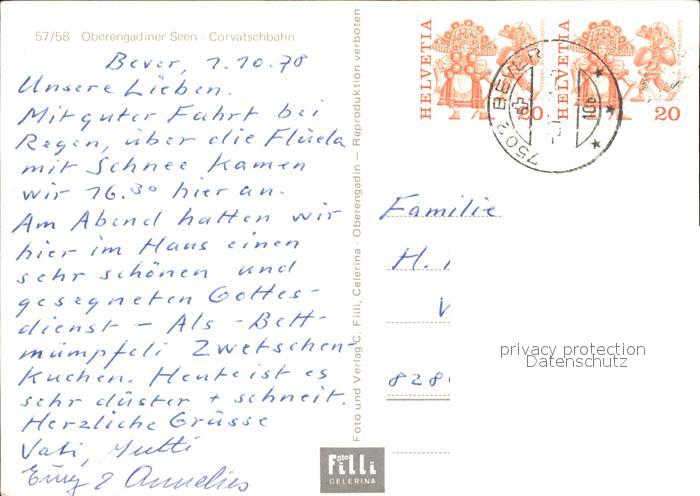 57/58 Oberengadiner Seen - Corvatschbahn
Bever, 1.10.78
Unsere Lieben.
Mit guter Fahrt bei
Regen, über die Flüela
mit Schnee kamen
wir 16.30 hier an.
Am Abend hatten wir
hier im Haus einen
sehr schönen und
gesegneten Gottes-
dienst - Als - Bett-
mümpfeli Zwetschen-
Kuchen. Heute ist es
sehr düster + schneit.
Herzliche Grüsse
Vati, Mutti
Annelies
Foto und Verlag C. Filli, Celerina - Oberengadin — Reproduktion verboten
Foto
Filli
CELERINA
HELVETIA
HELVETIA
20
20
7502 BEVER
Familie
H.
V
828
privacy protection
Datenschutz